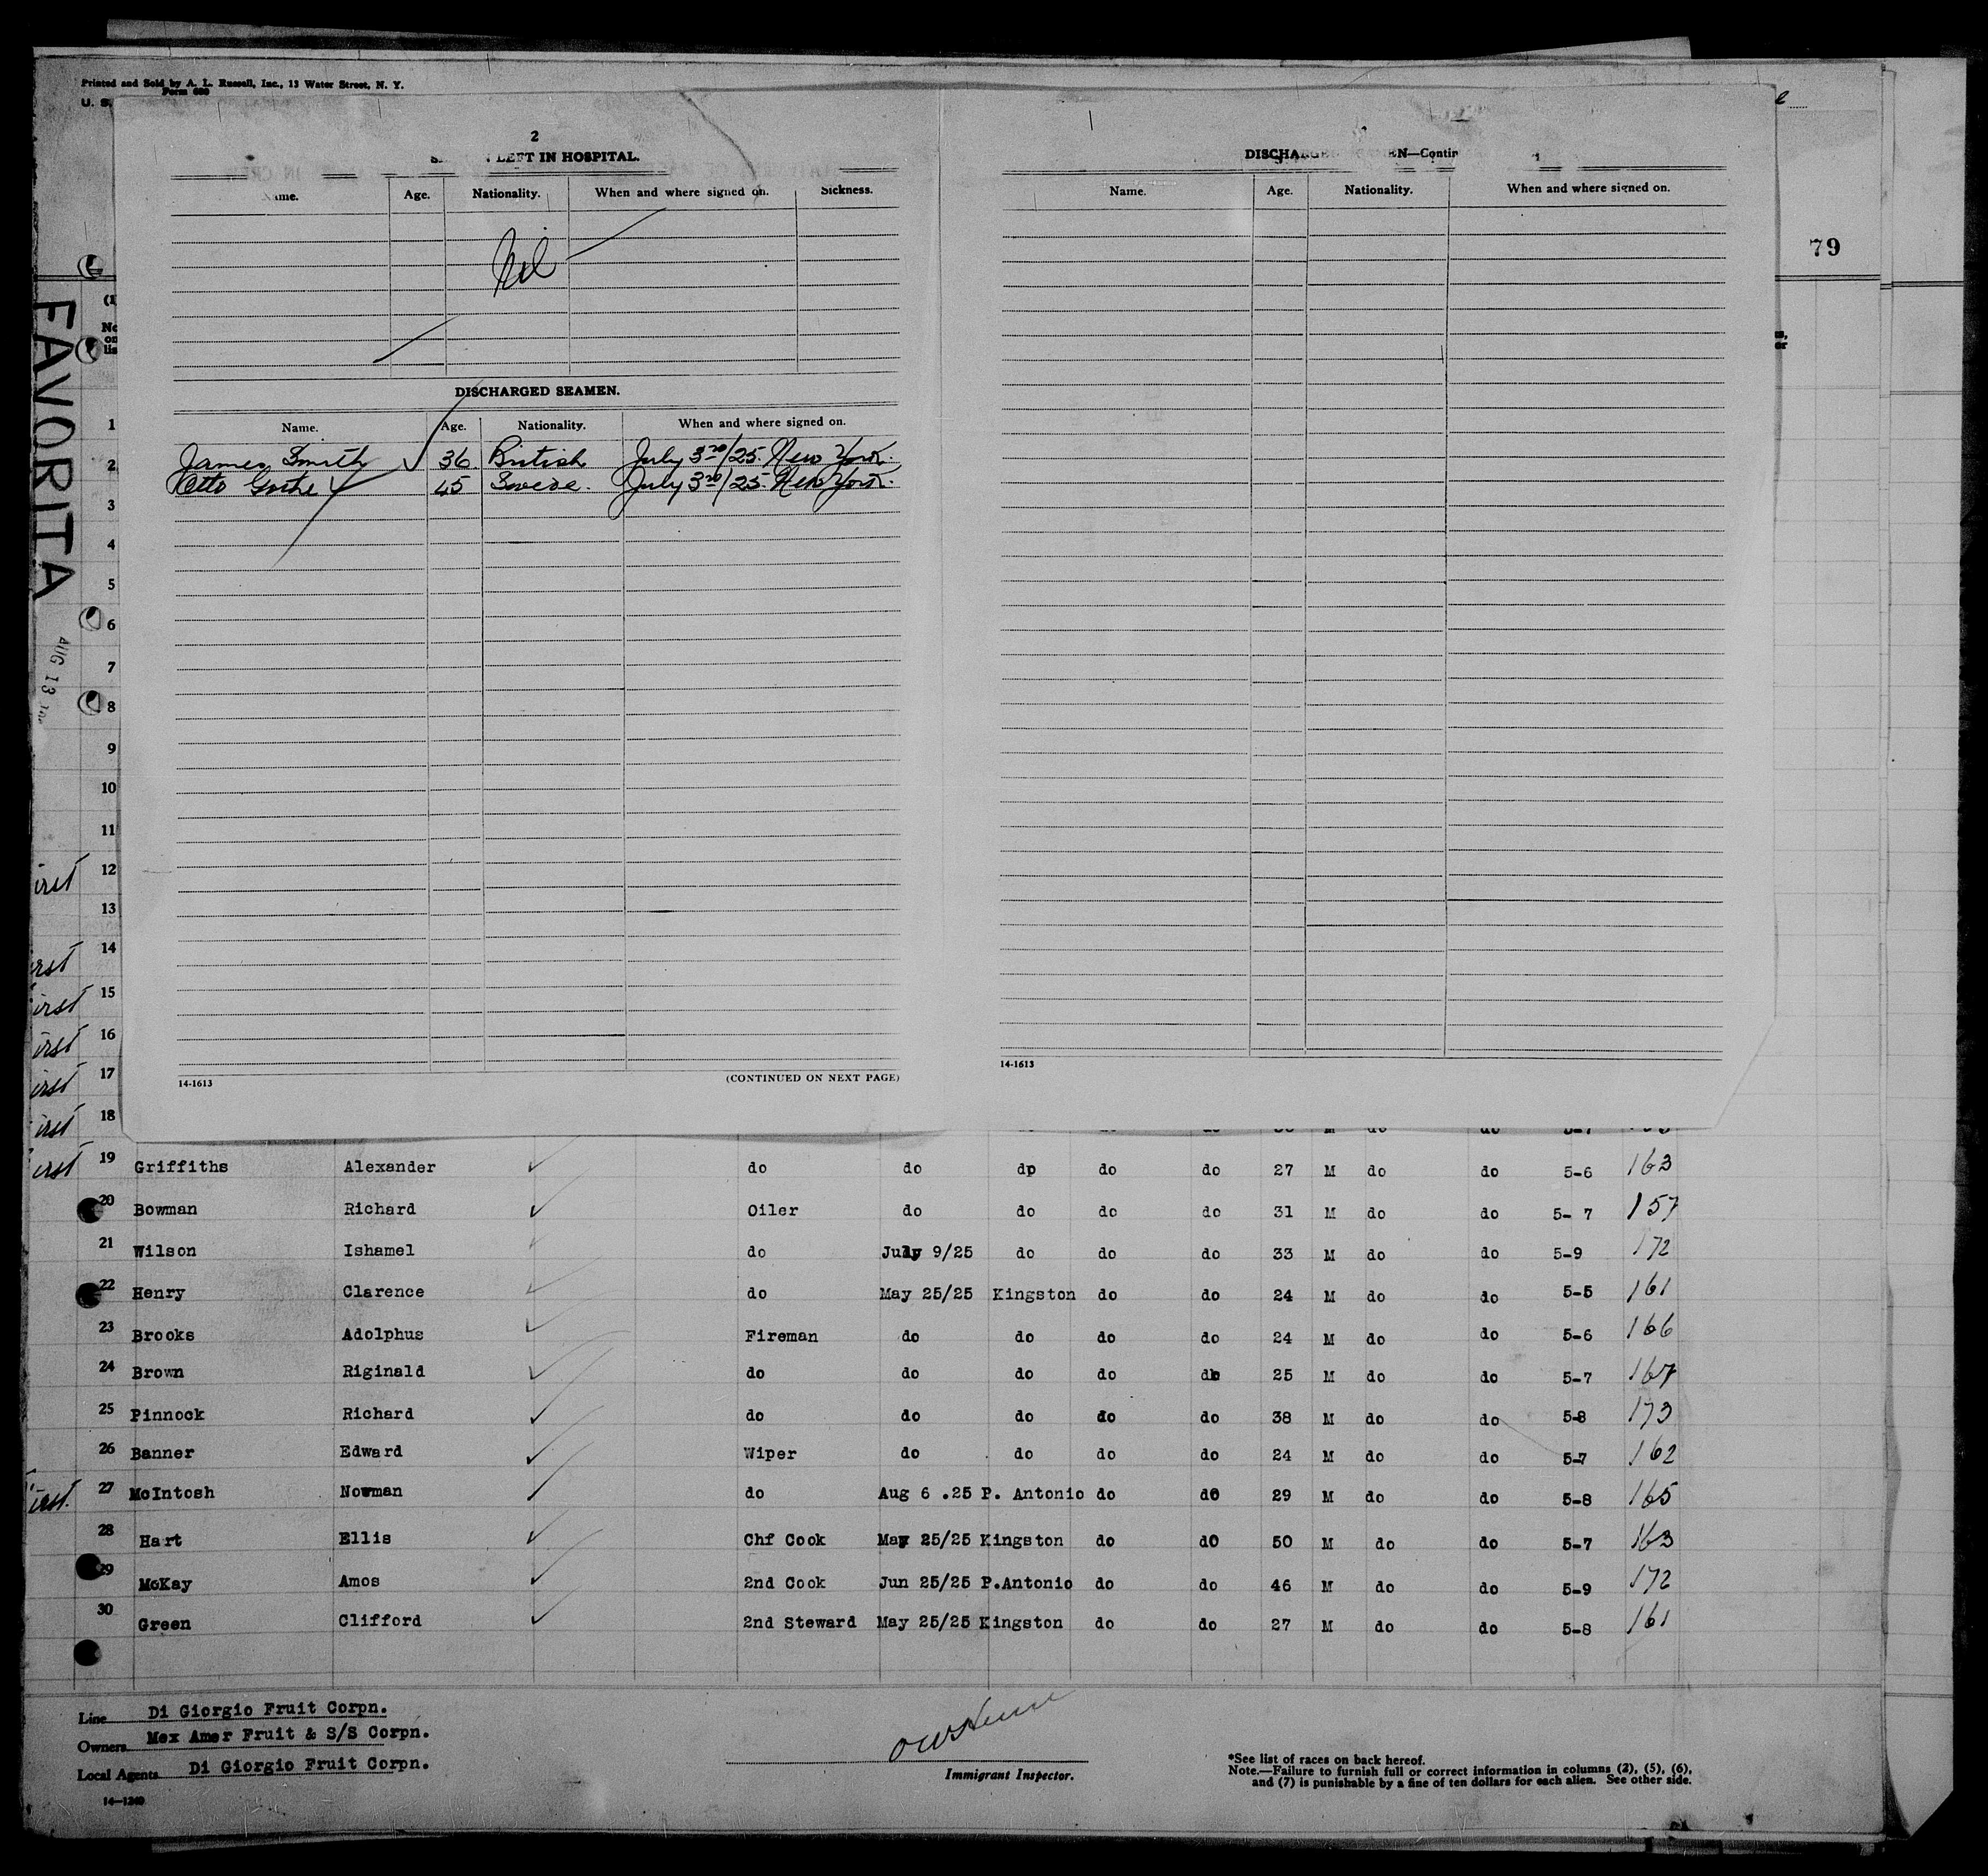 Printed and Sold by A. L. Russell, Inc., 13 Water Street, N. Y.
Form 680
U. S.
2
LEFT IN HOSPITAL.
Age. Nationality. When and where signed on. Sickness.
Nil
DISCHARGED SEAMEN.
Name. Age. Nationality. When and where signed on.
James Smith 36 British July 3rd/25. New York.
45 Swede. July 3rd/25. New York.
14-1613 (CONTINUED ON NEXT PAGE)
Name. Age. Nationality. When and where signed on.
14-1613
79
FAVORITA
AUG 13
1
2
3
4
5
6
7
8
9
10
11
12
13
14
15
16
17
18
19 Griffiths Alexander do do dp do do 27 M do do 5-6 163
20 Bowman Richard Oiler do do do do 31 M do do 5- 7 157
21 Wilson Ishamel do July 9/25 do do do 33 M do do 5-9 172
22 Henry Clarence do May 25/25 Kingston do do 24 M do do 5-5 161
23 Brooks Adolphus Fireman do do do do 24 M do do 5-6 166
24 Brown Riginald do do do do do 25 M do do 5-7 167
25 Pinnock Richard do do do do do 38 M do do 5-8 173
26 Banner Edward Wiper do do do do 24 M do do 5-7 162
27 McIntosh Nowman do Aug 6 .25 P. Antonio do do 29 M do do 5-8 165
28 Hart Ellis Chf Cook May 25/25 Kingston do do 50 M do do 5-7 163
29 McKay Amos 2nd Cook Jun 25/25 P.Antonio do do 46 M do do 5-9 172
30 Green Clifford 2nd Steward May 25/25 Kingston do do 27 M do do 5-8 161
Line Di Giorgio Fruit Corpn.
Owners Mex Amer Fruit & S/S Corpn.
Local Agents Di Giorgio Fruit Corpn.
14-1240
Immigrant Inspector.
*See list of races on back hereof.
Note.—Failure to furnish full or correct information in columns (2), (5), (6),
and (7) is punishable by a fine of ten dollars for each alien. See other side.